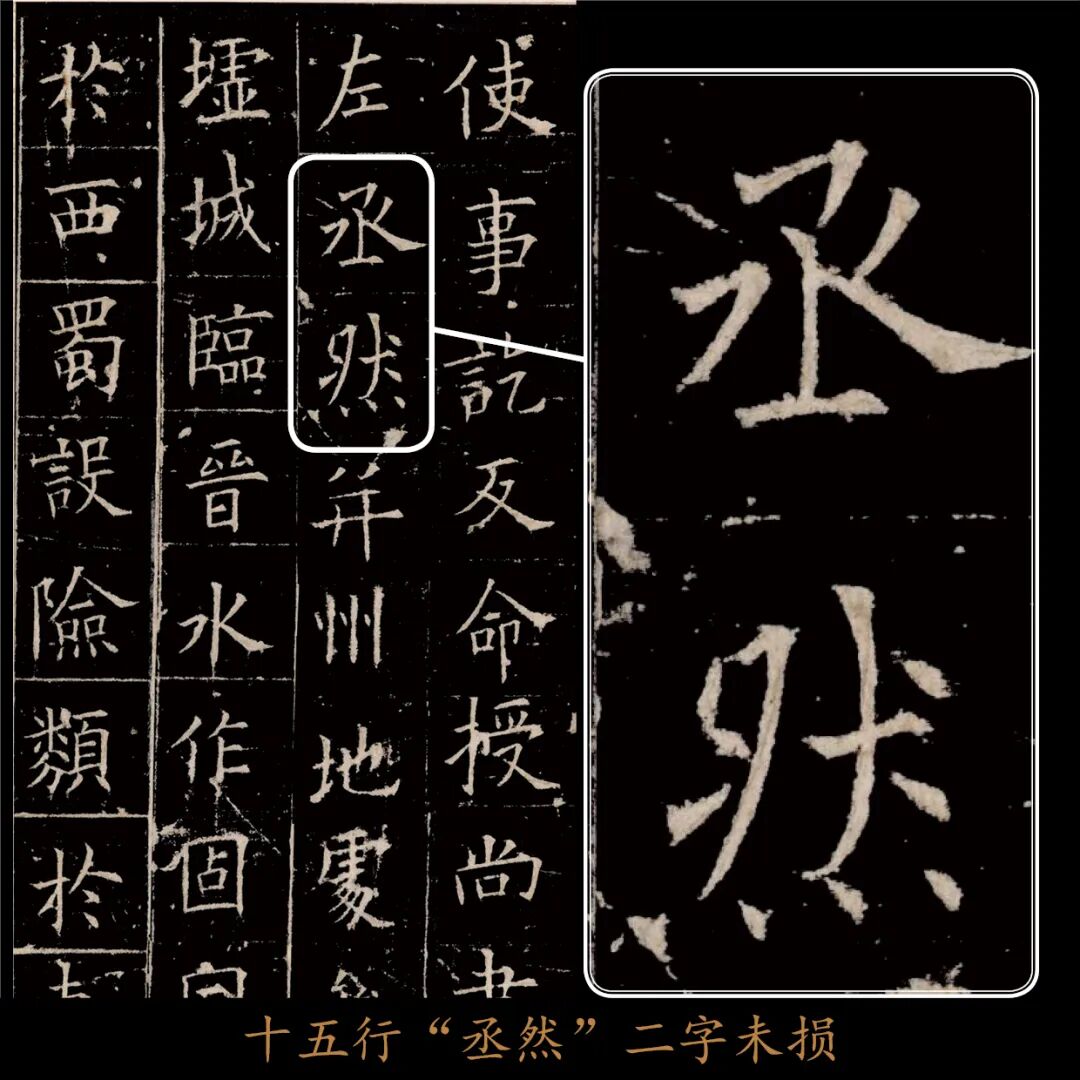 使事訖反命授尚
左丞然并州地處
墟城臨晉水作固
於西蜀設險類於
丞然
十五行“丞然”二字未损